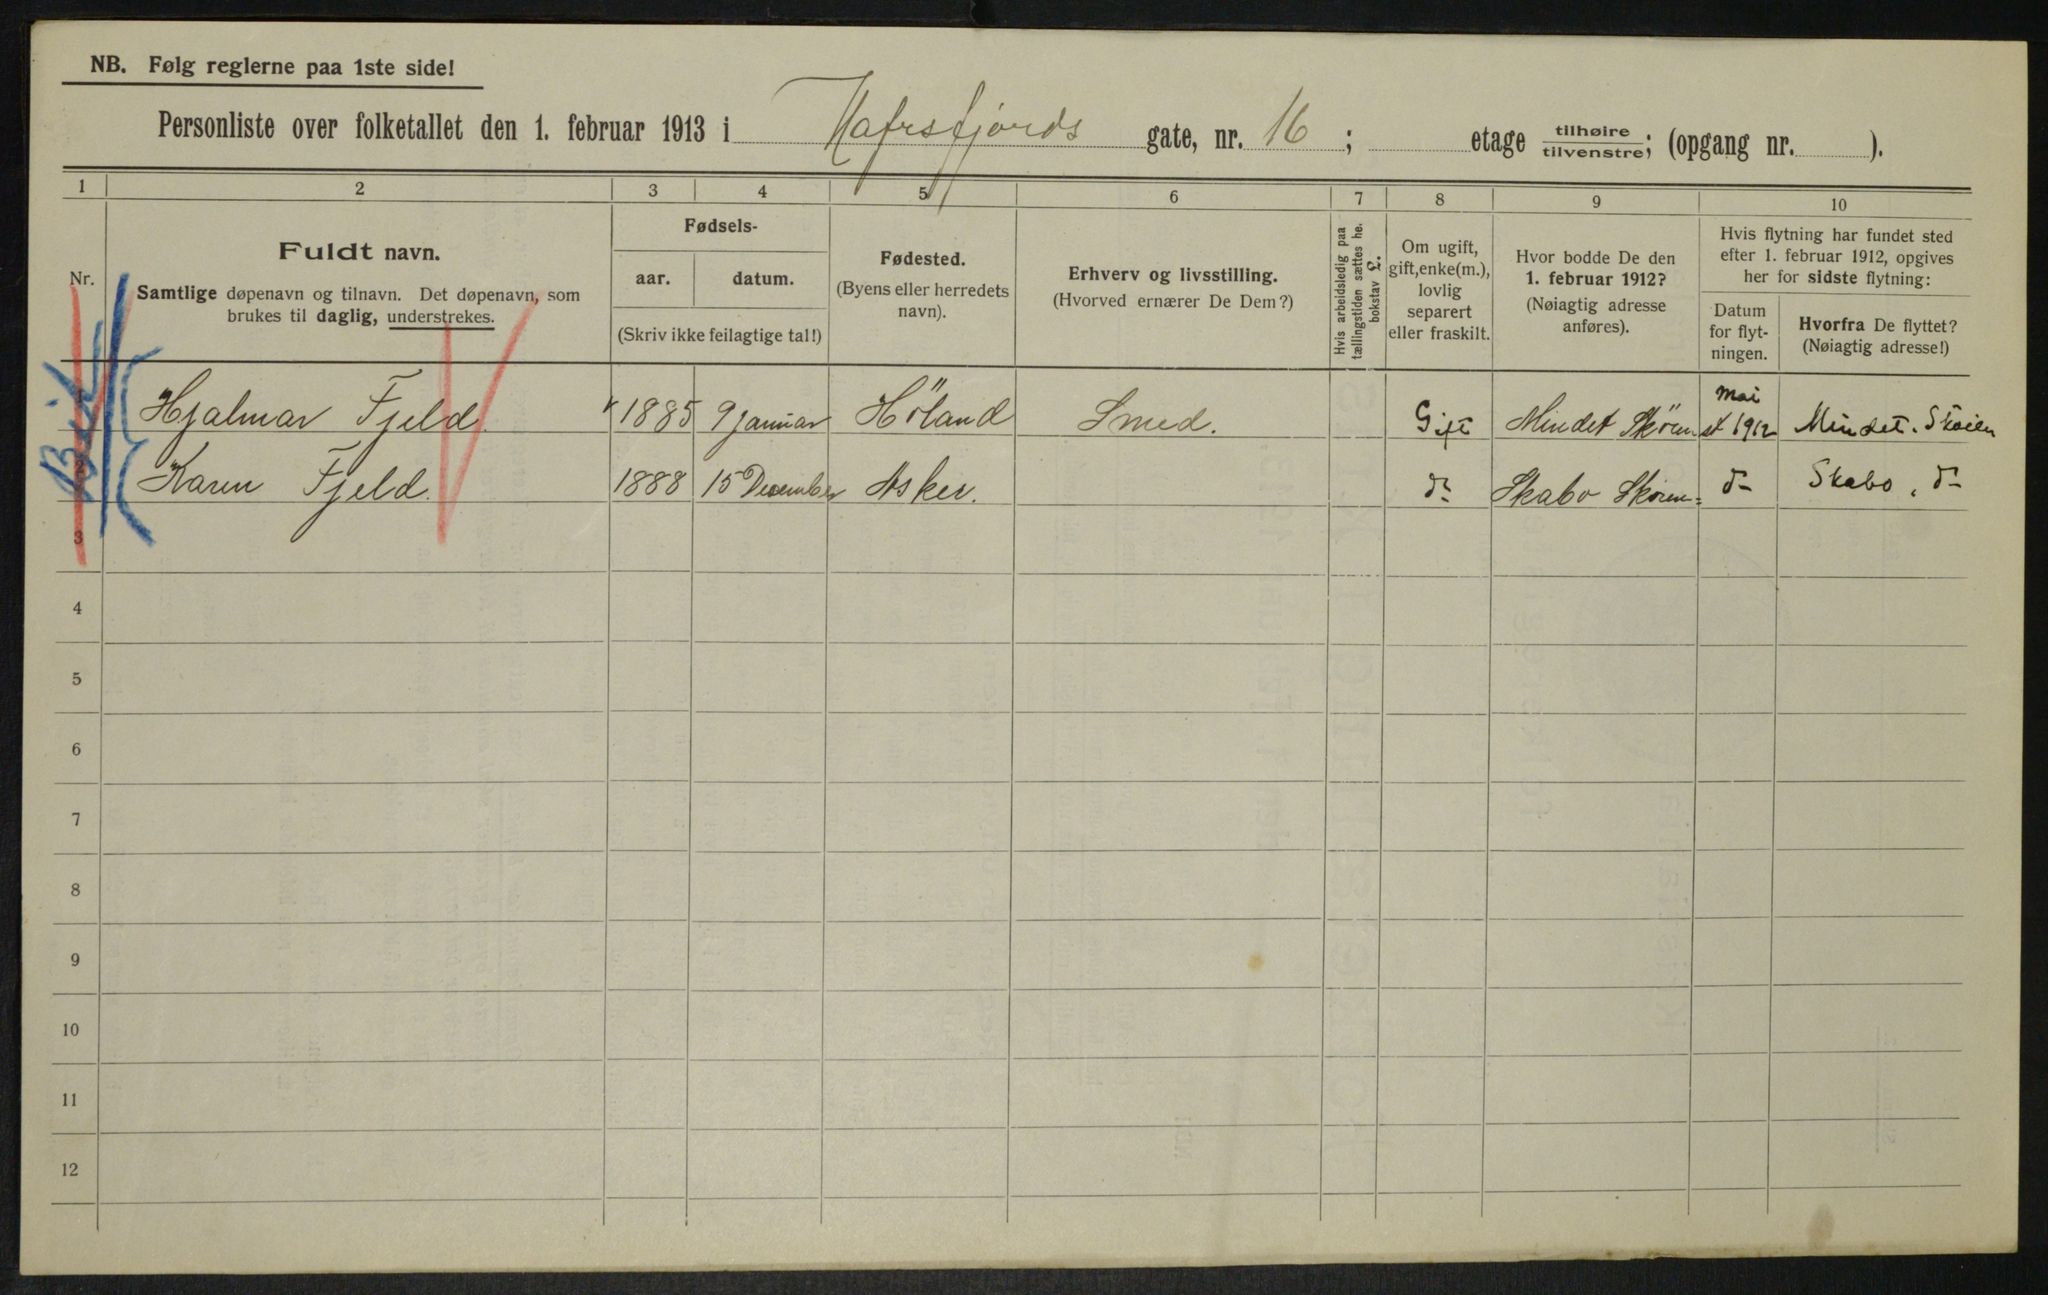 NB. Følg reglerne paa 1ste side!
Personliste over folketallet den 1. februar 1913 i Hafrsfjords gate, nr. 16 ; etage tilhøire tilvenstre; (opgang nr. ).
1 2 3 4 5 6 7 8 9 10
Nr.
Fuldt navn.
Samtlige døpenavn og tilnavn. Det døpenavn, som
brukes til daglig, understrekes.
Fødsels-
aar. datum.
(Skriv ikke feilagtige tal!)
Fødested.
(Byens eller herredets
navn).
Erhverv og livsstilling.
(Hvorved ernærer De Dem?)
Hvis arbeidsledig paa
tællingstiden sættes he.
bokstav L.
Om ugift,
gift, enke(m.),
lovlig
separert
eller fraskilt.
Hvor bodde De den
1. februar 1912?
(Nøiagtig adresse
anføres).
Hvis flytning har fundet sted
efter 1. februar 1912, opgives
her for sidste flytning:
Datum
for flyt-
ningen.
Hvorfra De flyttet?
(Nøiagtig adresse!)
Hjalmar Fjeld 1885 9 januar Höland Smed. Gift Mindet Skøien Mai 1912 Mindet. Skøien
2 Karen Fjeld. 1888 15 December Asker. do Skabo Skøien do Skabo, do
3
4
5
6
7
8
9
10
11
12